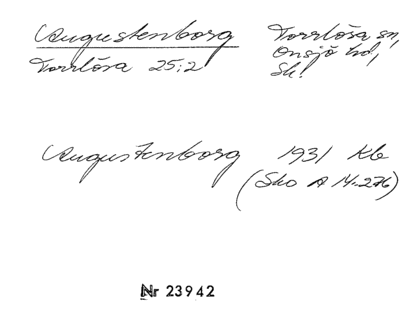 Augustenborg Torrlösa sn,
Torrlösa 25:2 Onsjö hd,
Sk!
Augustenborg 1931 Kb
(Sko A 14-276)
Nr 23942